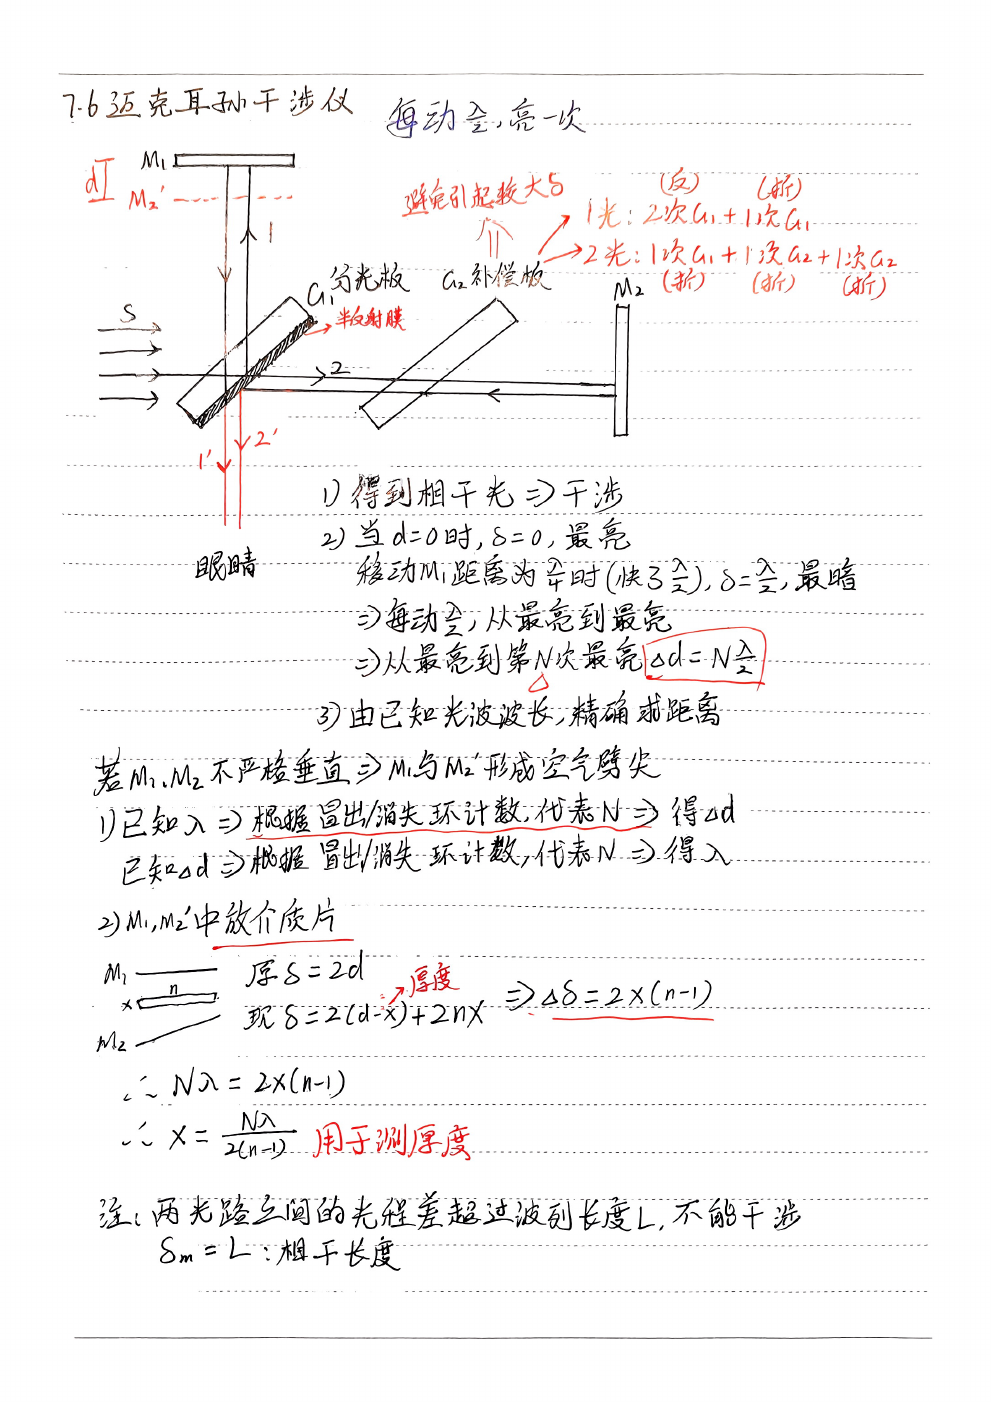 7.6 迈克耳孙干涉仪
每动λ/2,亮一次
M₁
d
M₂′
1
避免引起较大δ
(反) (折)
1光:2次G₁+1次G₁
2光:1次G₁+1次G₂+1次G₂
(折) (折) (折)
G₁ 分光板
G₂ 补偿板
M₂
半反射膜
S
2
1′ 2′
眼睛
1) 得到相干光⇒干涉
2) 当d=0时,δ=0,最亮
移动M₁距离为λ/4时(快了λ/2),δ=λ/2,最暗
⇒每动λ/2,从最亮到最亮
⇒从最亮到第N次最亮 Δd=Nλ/2
△
3) 由已知光波波长,精确求距离
若M₁、M₂不严格垂直⇒M₁与M₂′形成空气劈尖
1) 已知λ⇒根据冒出/消失环计数,代表N⇒得Δd
已知Δd⇒根据冒出/消失环计数,代表N⇒得λ
2) M₁,M₂′中放介质片
M₁
n
x
M₂
原δ=2d
厚度
现δ=2(d-x)+2nx ⇒Δδ=2x(n-1)
∴Nλ=2x(n-1)
∴x=Nλ/2(n-1) 用于测厚度
注:两光路之间的光程差超过波列长度L,不能干涉
δm=L:相干长度